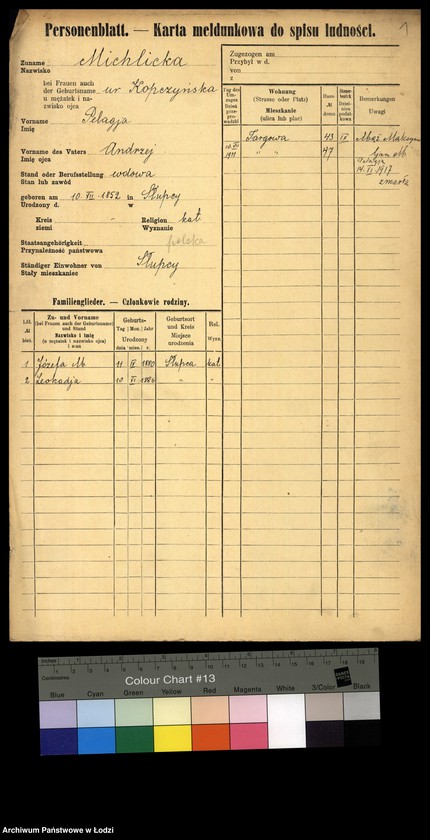 Personenblatt. — Karta meldunkowa do spisu ludności.
1
Zuname Michlicka
Nazwisko
bei Frauen auch
der Geburtsname ur Kopczyńska
u mężatek i na-
zwisko ojca
Vorname Pelagja
Imię
Vorname des Vaters Andrzej
Imię ojca
Stand oder Berufsstellung wdowa
Stan lub zawód
geboren am 10. VII. 1852 in Słupcy
Urodzony d. w
Kreis " Religion kat
ziemi Wyznanie
Staatsangehörigkeit polska
Przynależność państwowa
Ständiger Einwohner von Słupcy
Stały mieszkaniec
Familienglieder. — Członkowie rodziny.
Lfd. № bież.
Zu- und Vorname
(bei Frauen auch der Geburtsname)
und Stand
Nazwisko i imię
(u mężatek i nazwisko ojca)
i stan
Geburts-
Tag Mon. Jahr
Urodzony
dnia mies. r.
Geburtsort
und Kreis
Miejsce
urodzenia
Rel.
Wyzn.
1 Józefa M 11 IV 1880 Słupca kat
2 Leokadja 10 VI 1886 " "
Zugezogen am
Przybył w d.
von
z
Tag des
Um-
zuges
Dzień
prze-
prowadzki
Wohnung
(Strasse oder Platz)
Mieszkanie
(ulica lub plac)
Haus-
№
domu
Steue-
bezirk
Dzielnica
podat-
kowa
Bemerkungen
Uwagi
Targowa 43 IV Mąż
" " 47
1911
Pelagja
14. II. 1917
zmarła
inches
Centimetres
Colour Chart #13
Blue Cyan Green Yellow Red Magenta White 3/Color Black
Archiwum Państwowe w Łodzi